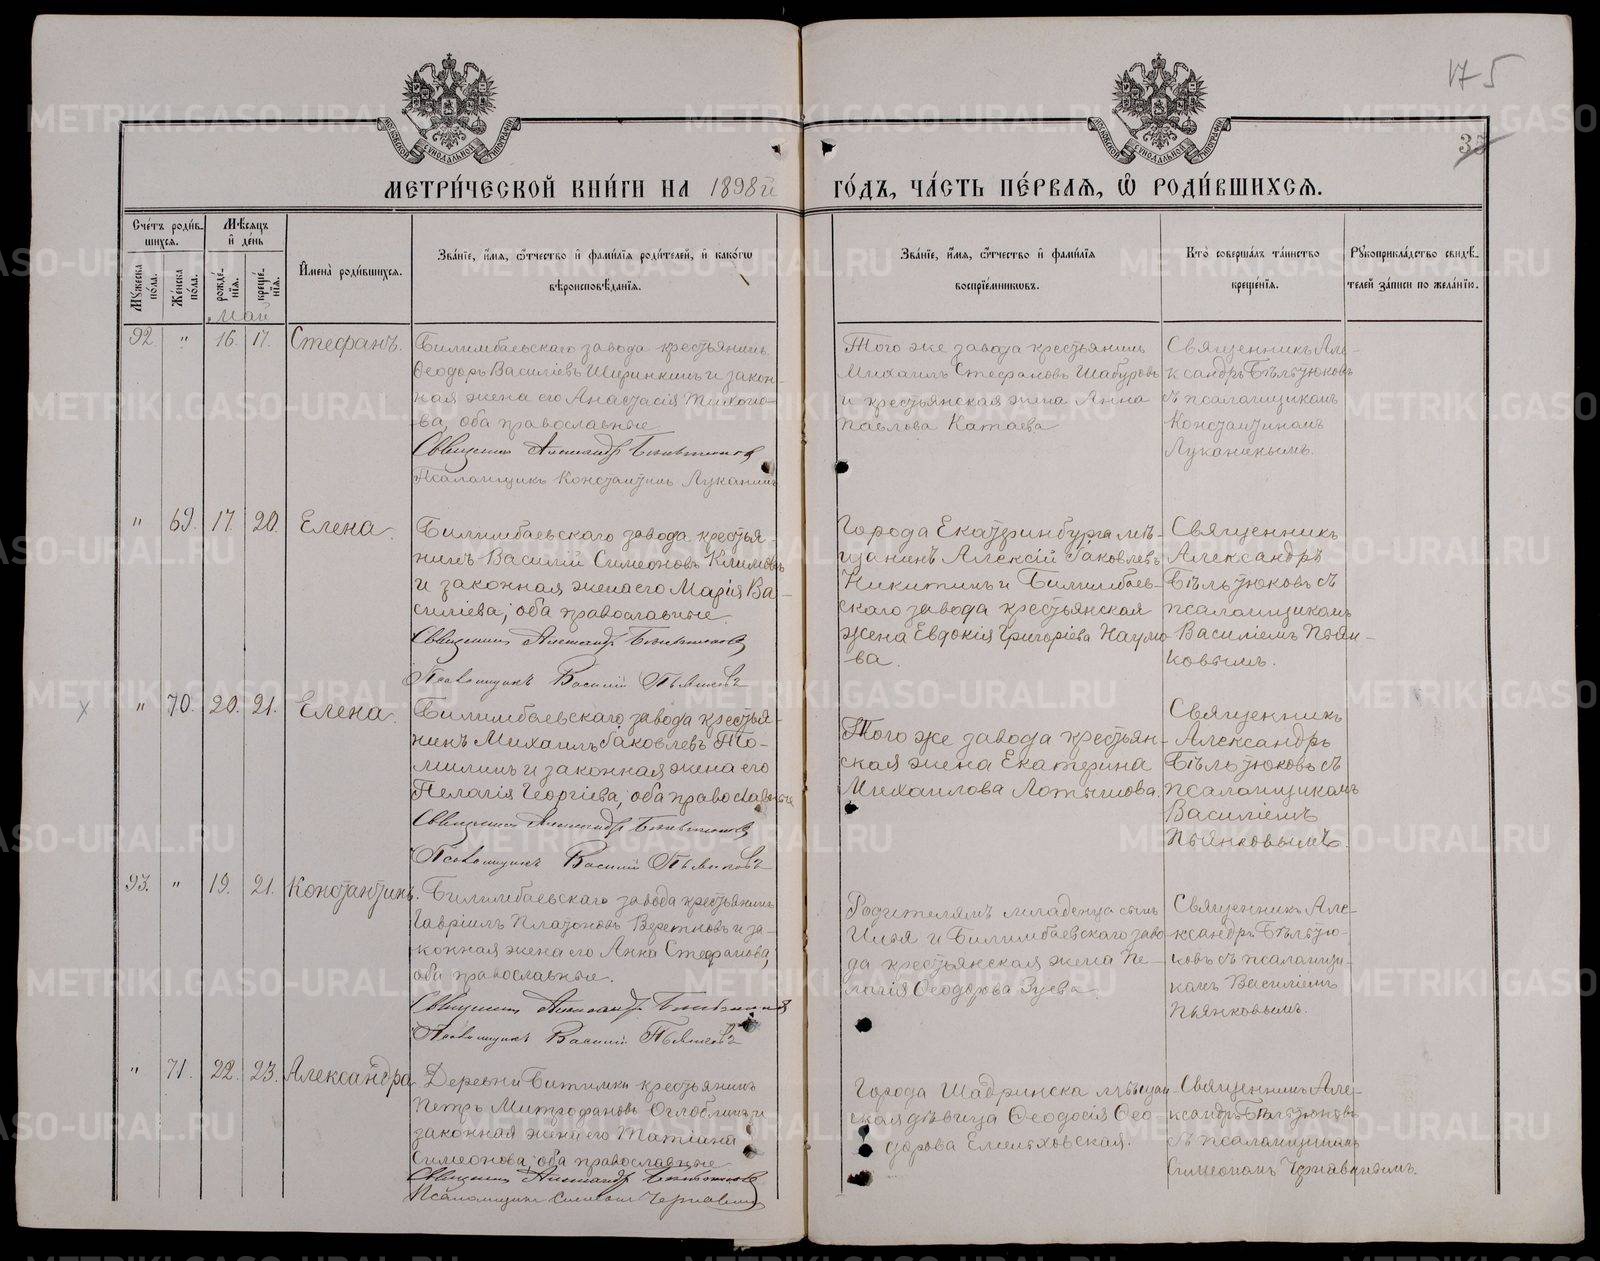 175
35
МЕТРИЧЕСКОЙ КНИГИ НА 1898й
ГОДЪ, ЧАСТЬ ПЕРВАЯ, Ѡ РОДИВШИХСЯ.
Счетъ родившихся.
Мужеска пола.
Женска пола.
Мѣсяцъ и день
рожденія.
крещенія.
Имена родившихся.
Званіе, имя, ѿчество и фамилія родителей, и какогѡ
вѣроисповѣданія.
Званіе, имя, ѿчество и фамилія
воспріемникѡвъ.
Кто совершалъ таинство
крещенія.
Рукоприкладство свидѣ-
телей записи по желанію.
Май
92. " 16. 17. Стефанъ.
Билимбаевскаго завода крестьянинъ
Ѳеодоръ Василіевъ Ширинкинъ и закон-
ная жена его Анастасія Тихоно-
ва, оба православные
Священникъ Александръ Бѣльтюковъ
Псаломщикъ Константинъ Луканинъ
Того же завода крестьянинъ
Михаилъ Стефановъ Шабуровъ
и крестьянская жена Анна
Павлова Катаева
Священникъ Але-
ксандръ Бѣльтюковъ
съ псаломщикомъ
Константиномъ
Луканинымъ.
" 69. 17. 20. Елена.
Билимбаевскаго завода крестья-
нинъ Василій Симеоновъ Климовъ
и законная жена его Марія Ва-
силіева, оба православные
Священникъ Александръ Бѣльтюковъ
Псаломщикъ Василій Пьянковъ
Города Екатеринбурга мѣ-
щанинъ Алексій Іаковлевъ
Никитинъ и Билимбаев-
скаго завода крестьянская
жена Евдокія Григоріева Наумо-
ва.
Священникъ
Александръ
Бѣльтюковъ съ
псаломщикомъ
Василіемъ Пьян-
ковымъ.
" 70. 20. 21. Елена.
Билимбаевскаго завода крестья-
нинъ Михаилъ Іаковлевъ То-
милинъ и законная жена его
Пелагія Георгіева, оба православные
Священникъ Александръ Бѣльтюковъ
Псаломщикъ Василій Пьянковъ
Того же завода крестьян-
ская жена Екатерина
Михаилова Латышова.
Священникъ
Александръ
Бѣльтюковъ съ
псаломщикомъ
Василіемъ
Пьянковымъ.
93. " 19. 21. Константинъ.
Билимбаевскаго завода крестьянинъ
Гавріилъ Платоновъ и за-
конная жена его Анна Стефанова,
оба православные.
Священникъ Александръ Бѣльтюковъ
Псаломщикъ Василій Пьянковъ
Родителямъ младенца сынъ
Илья и Билимбаевскаго заво-
да крестьянская жена Пе-
лагія Ѳеодорова Зуева.
Священникъ Але-
ксандръ Бѣльтю-
ковъ съ псаломщи-
комъ Василіемъ
Пьянковымъ.
" 71. 22. 23. Александра
Деревни Битимки крестьянинъ
Петръ Митрофановъ Оглоблинъ и
законная жена его Татіана
Симеонова, оба православные
Священникъ Александръ Бѣльтюковъ
Псаломщикъ Симеонъ Чернавинъ
Города Шадринска мѣщан-
ская дѣвица Ѳеодосія Ѳео-
дорова Емельховская.
Священникъ Але-
ксандръ Бѣльтюковъ
съ псаломщикомъ
Симеономъ Чернавинымъ.